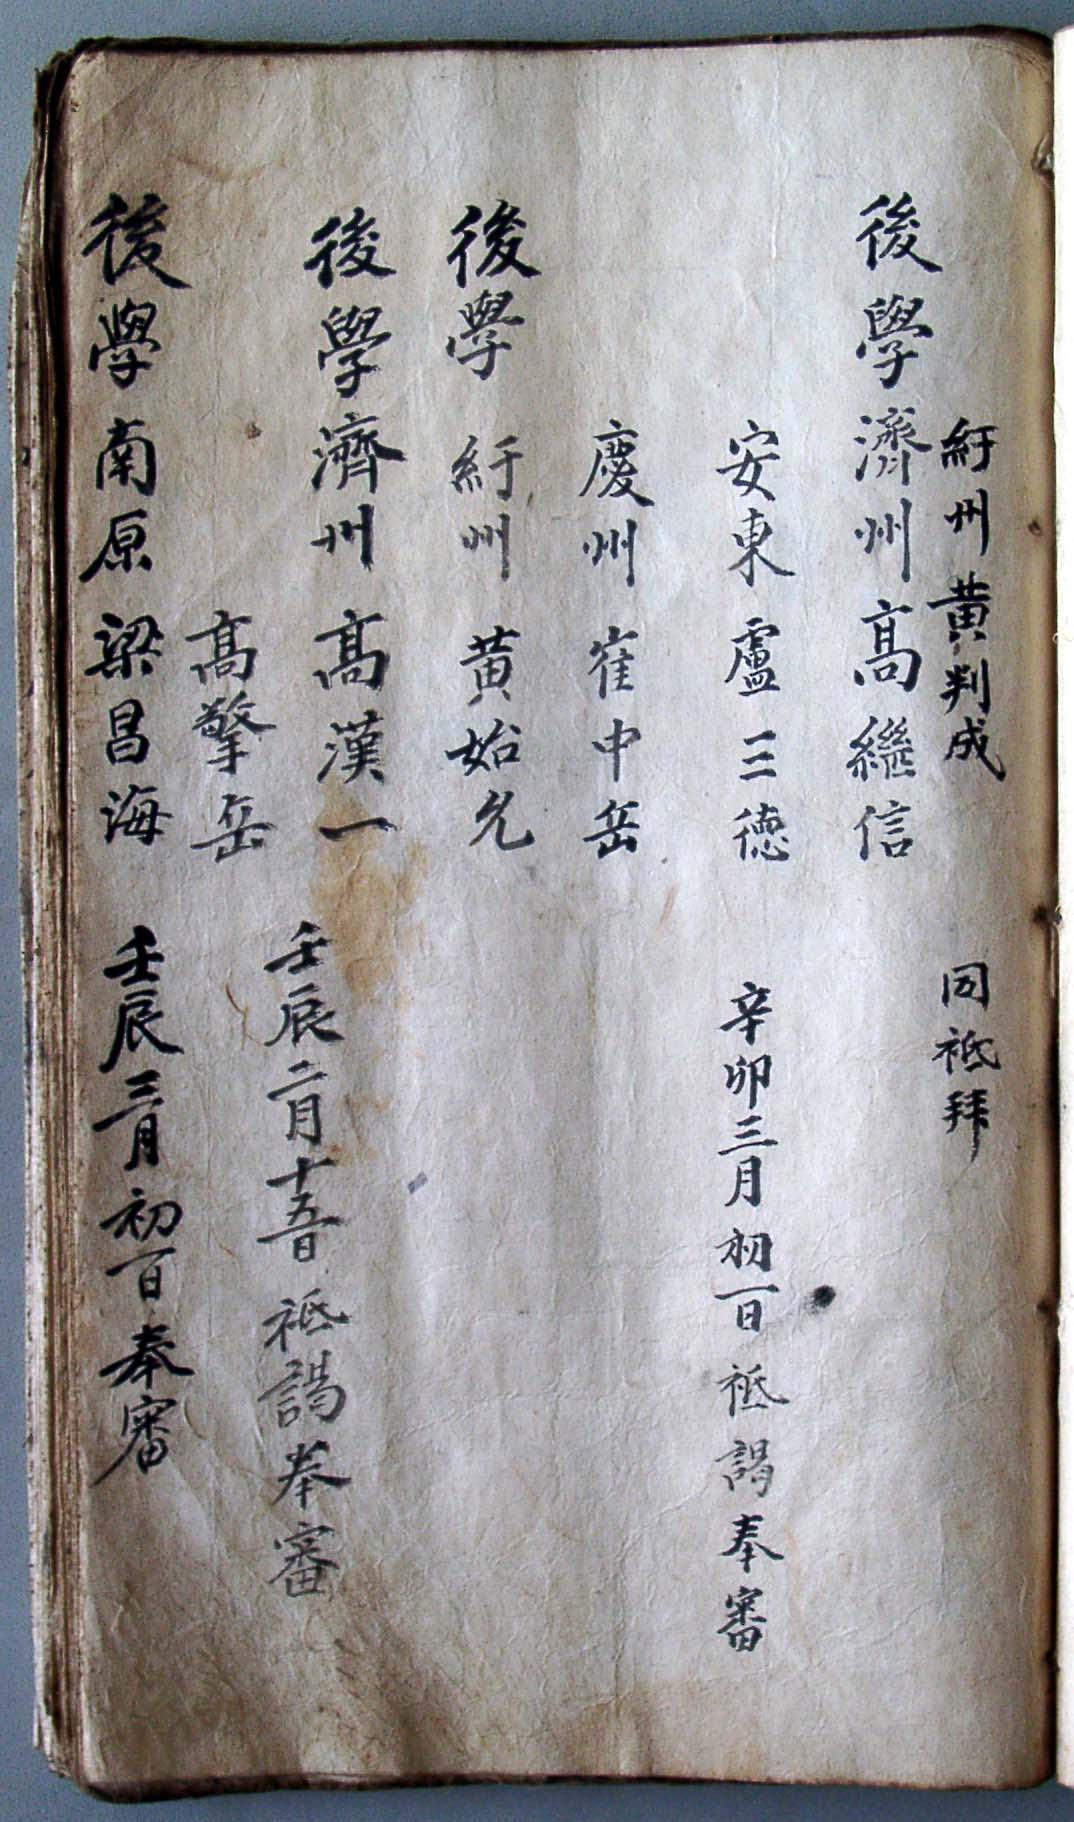 紆州 黄判成 同祗拜
後學濟州 高繼信
安東 盧三德 辛卯三月初一日 祗謁奉審
慶州 崔中岳
後學 紆州 黄始允
後學濟州 高漢一
高擎岳 壬辰二月十五日 祗謁奉審
後學南原 梁昌海 壬辰三月初一日 奉審